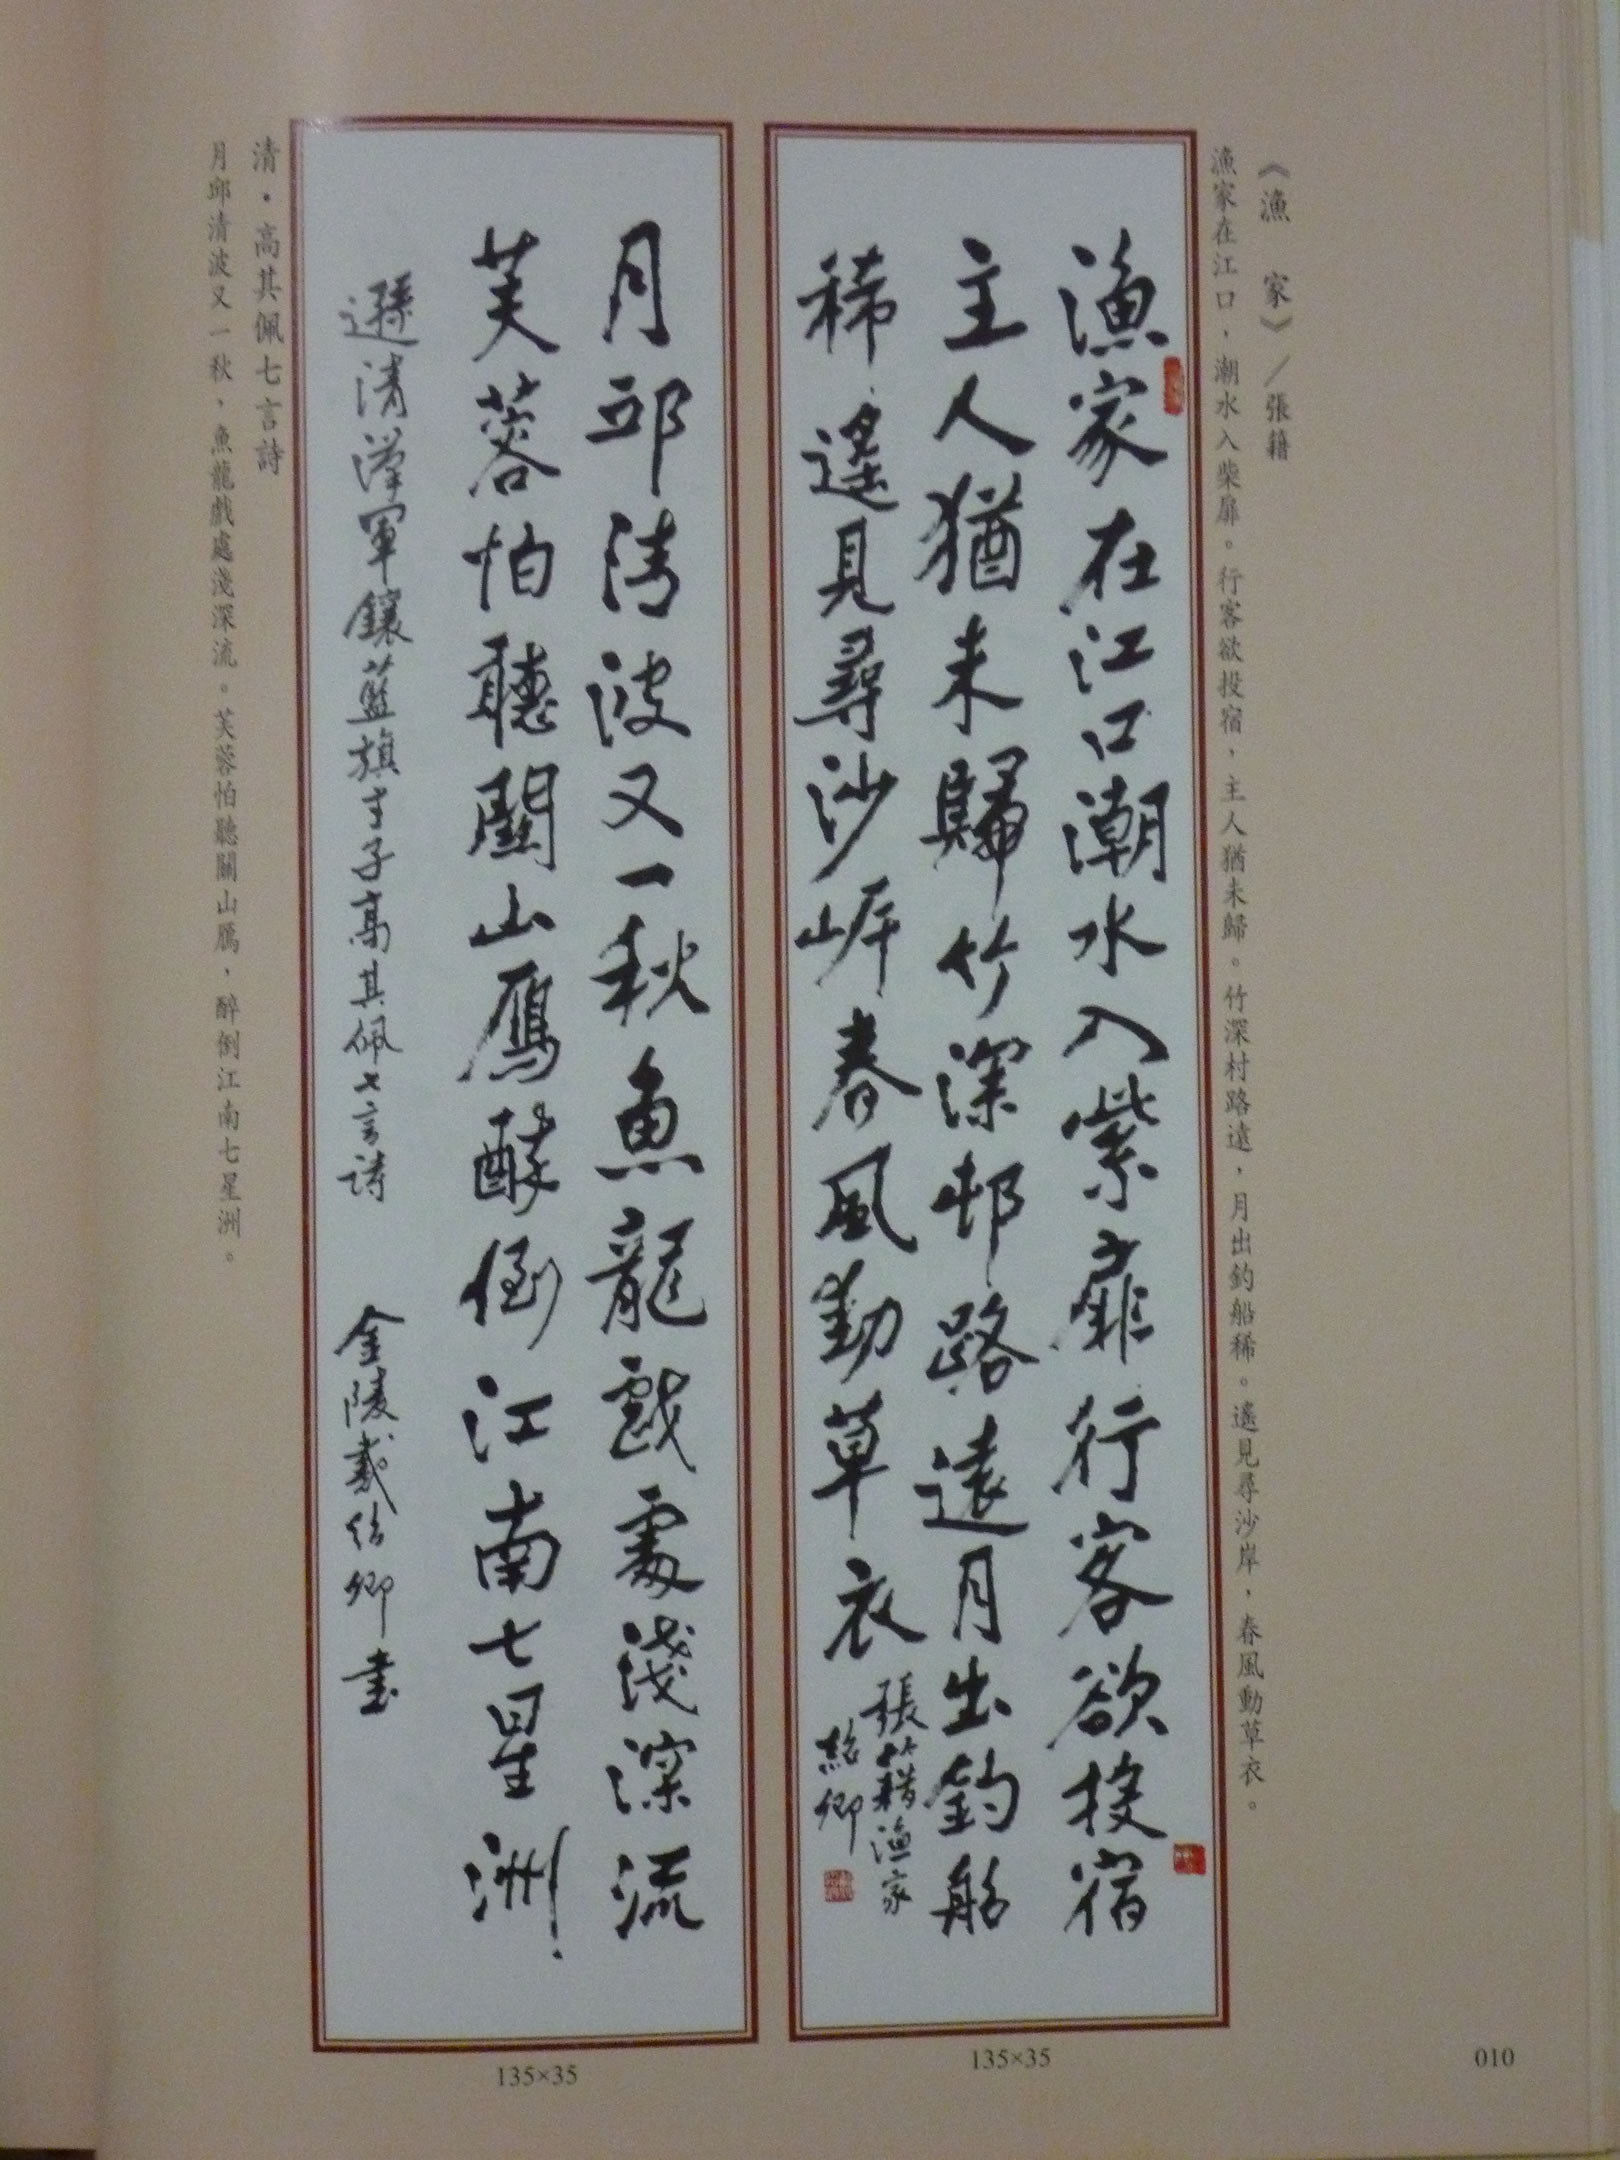 《漁　家》／張籍
漁家在江口，潮水入柴扉。行客欲投宿，主人猶未歸。竹深村路遠，月出釣船稀。遙見尋沙岸，春風動草衣。
漁家在江口潮水入紫扉行客欲投宿
主人猶未歸竹深邨路遠月出釣船
稀遙見尋沙岸春風動草衣
張籍漁家
紹卿
135×35
月邱清波又一秋魚龍戲處淺深流
芙蓉怕聽關山鴈醉倒江南七星洲
遜清漢軍鑲藍旗才子高其佩七言詩　金陵戴紹卿書
135×35
清．高其佩七言詩
月邱清波又一秋，魚龍戲處淺深流。芙蓉怕聽關山鴈，醉倒江南七星洲。
010